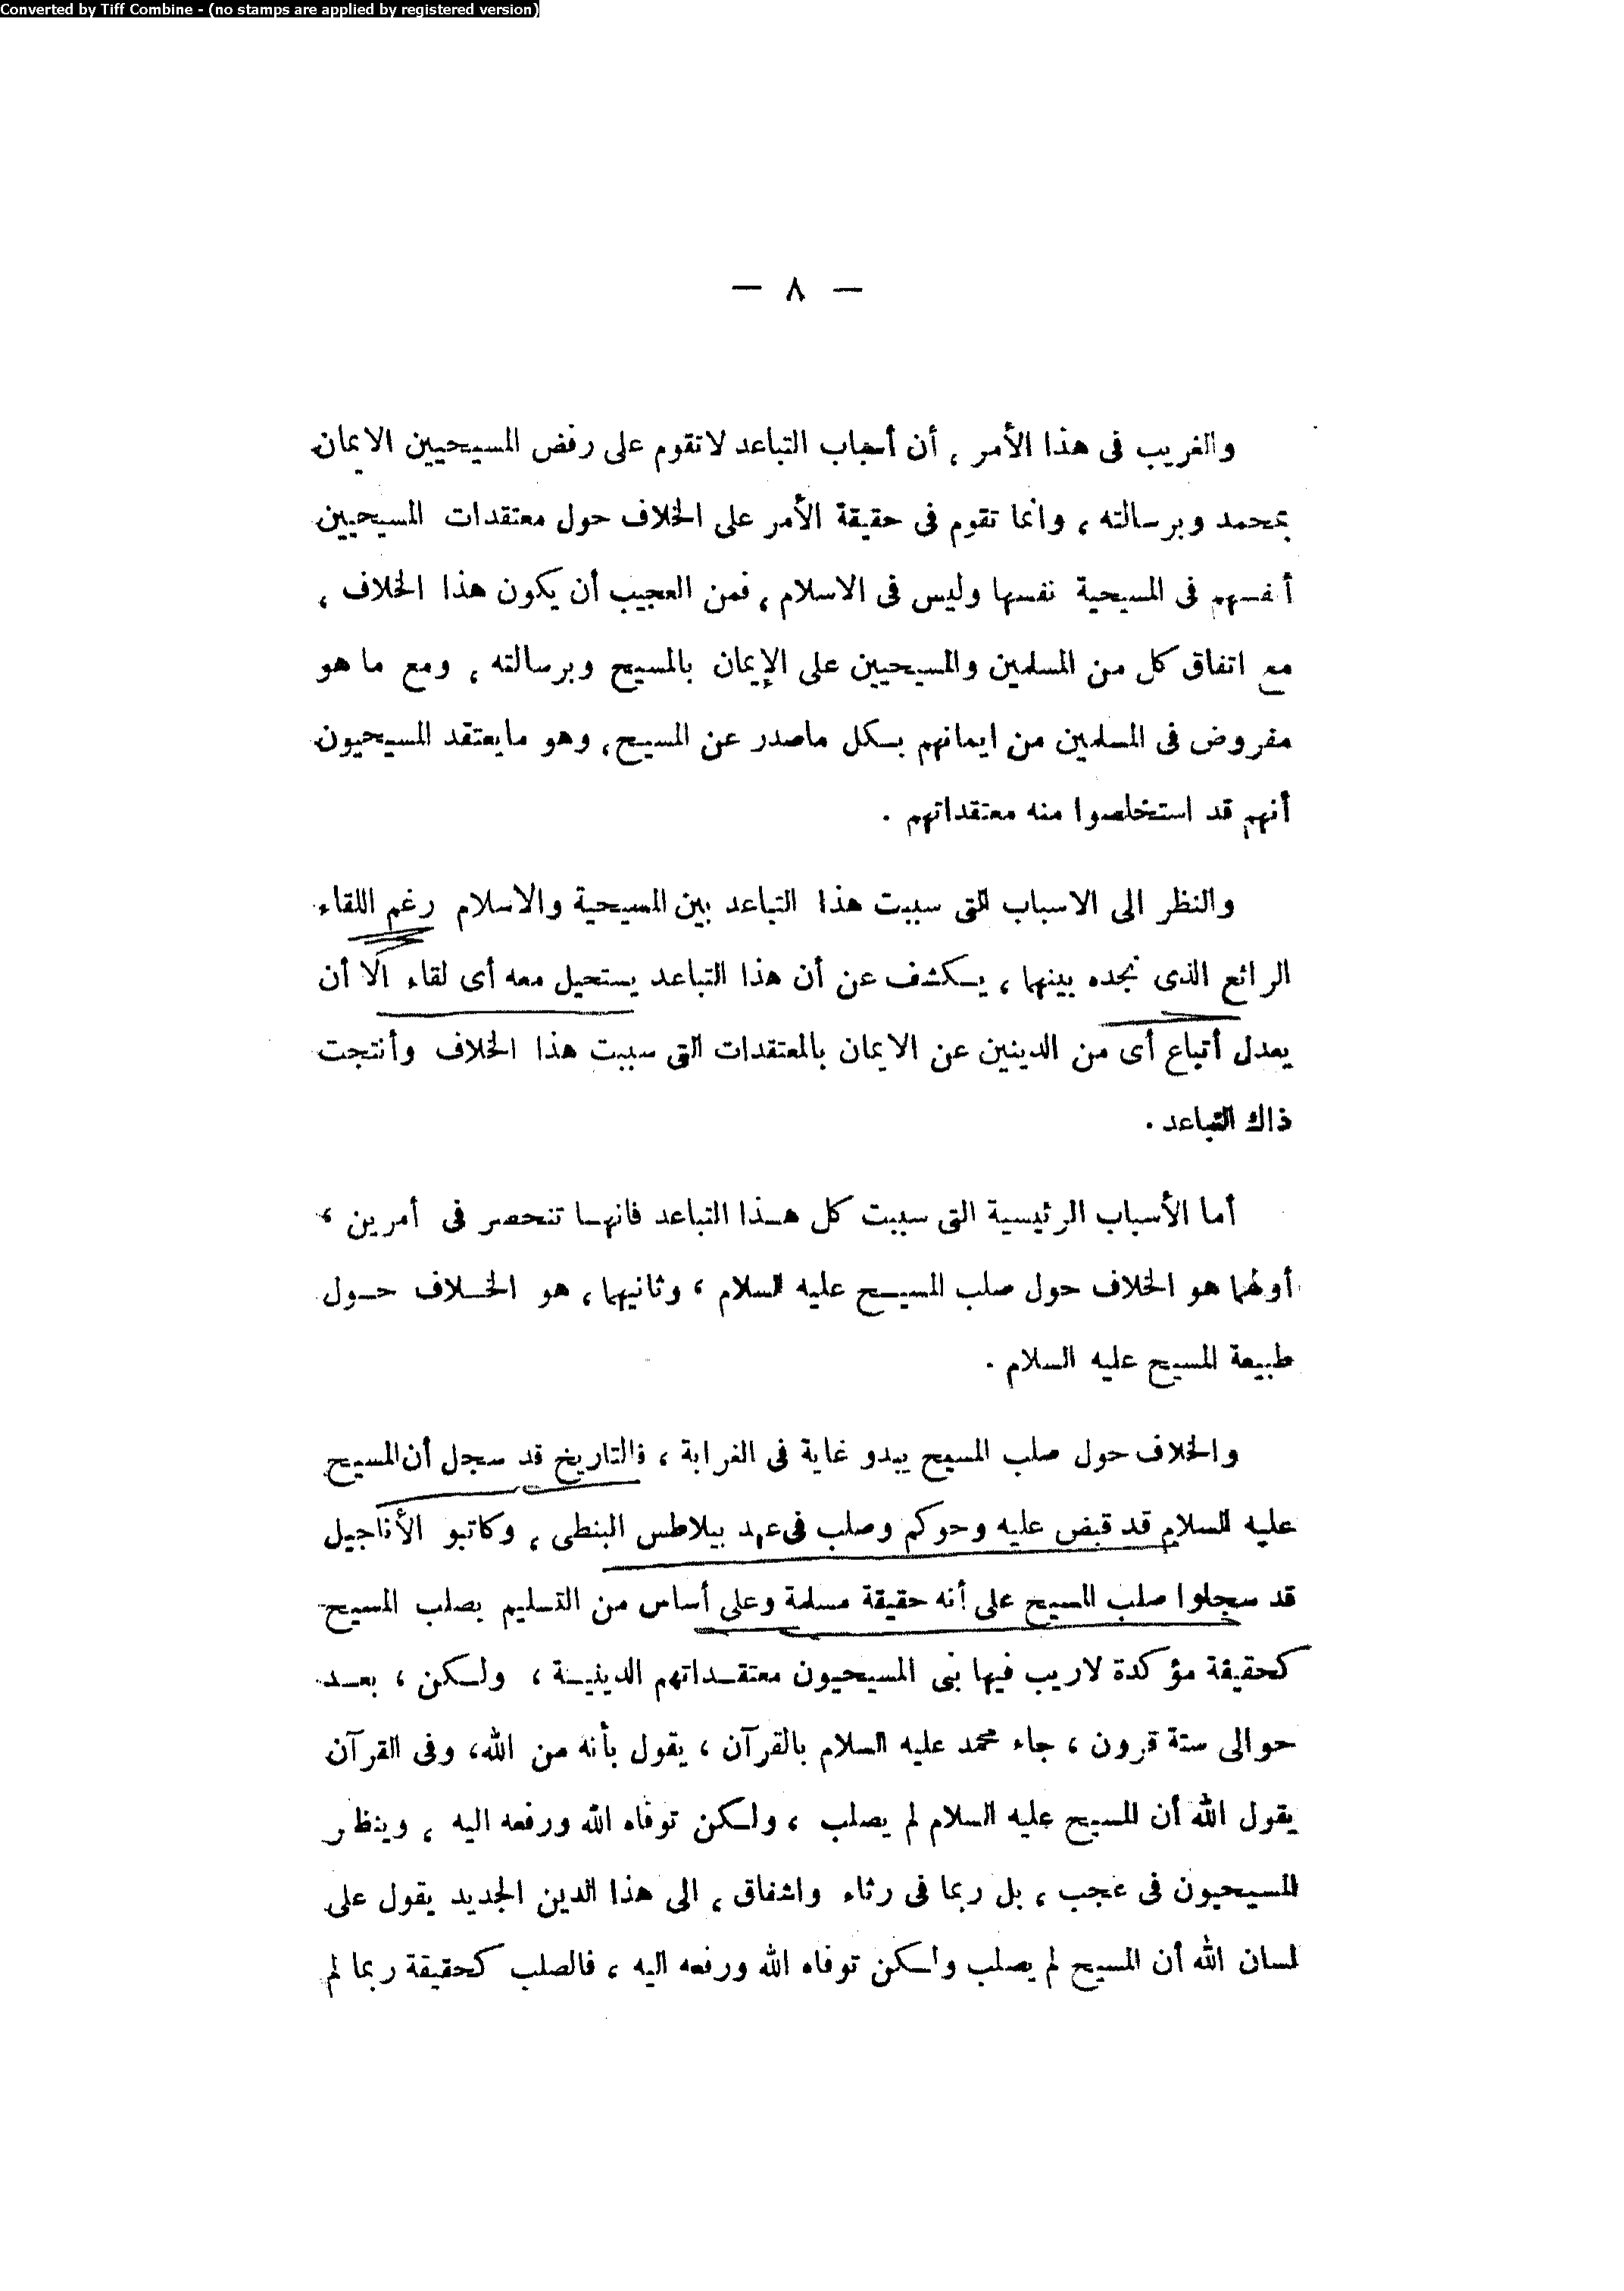 Converted by Tiff Combine - (no stamps are applied by registered version)
— ٨ —
والغريب فى هذا الأمر ، أن أسباب التباعد لاتقوم على رفض المسيحيين الايمان
بمحمد وبرسالته ، وانما تقوم فى حقيقة الأمر على الخلاف حول معتقدات المسيحيين
أنفسهم فى المسيحية نفسها وليس فى الاسلام ، فمن العجيب أن يكون هذا الخلاف ،
مع اتفاق كل من المسلمين والمسيحيين على الإيمان بالمسيح وبرسالته ، ومع ما هو
مفروض فى المسلمين من ايمانهم بكل ماصدر عن المسيح ، وهو مايعتقد المسيحيون
أنهم قد استخلصوا منه معتقداتهم .
والنظر الى الاسباب التى سببت هذا التباعد بين المسيحية والاسلام رغم اللقاء
الرائع الذى نجده بينهما ، يكشف عن أن هذا التباعد يستحيل معه أى لقاء الا أن
يعدل أتباع أى من الدينين عن الايمان بالمعتقدات التى سببت هذا الخلاف وأنتجت
ذاك التباعد .
أما الأسباب الرئيسية التى سببت كل هــذا التباعد فانهــا تنحصر فى أمرين ،
أولهما هو الخلاف حول صلب المسيــح عليه السلام ، وثانيهما ، هو الخــلاف حــول
طبيعة المسيح عليه السلام .
والخلاف حول صلب المسيح يبدو غاية فى الغرابة ، فالتاريخ قد سجل أن المسيح
عليه السلام قد قبض عليه وحوكم وصلب فى عهد بيلاطس البنطى ، وكاتبو الأناجيل
قد سجلوا صلب المسيح على أنه حقيقة مسلمة وعلى أساس من التسليم بصلب المسيح
كحقيقة مؤكدة لاريب فيها بنى المسيحيون معتقــداتهم الدينيــة ، ولــكن ، بعــد
حوالى ستة قرون ، جاء محمد عليه السلام بالقرآن ، يقول بأنه من الله ، وفى القرآن
يقول الله أن المسيح عليه السلام لم يصلب ، ولــكن توفاه الله ورفعه اليه ، وينظر
المسيحيون فى عجب ، بل ربما فى رثاء واشفاق ، الى هذا الدين الجديد يقول على
لسان الله أن المسيح لم يصلب ولــكن توفاه الله ورفعه اليه ، فالصلب كحقيقة ربما لم